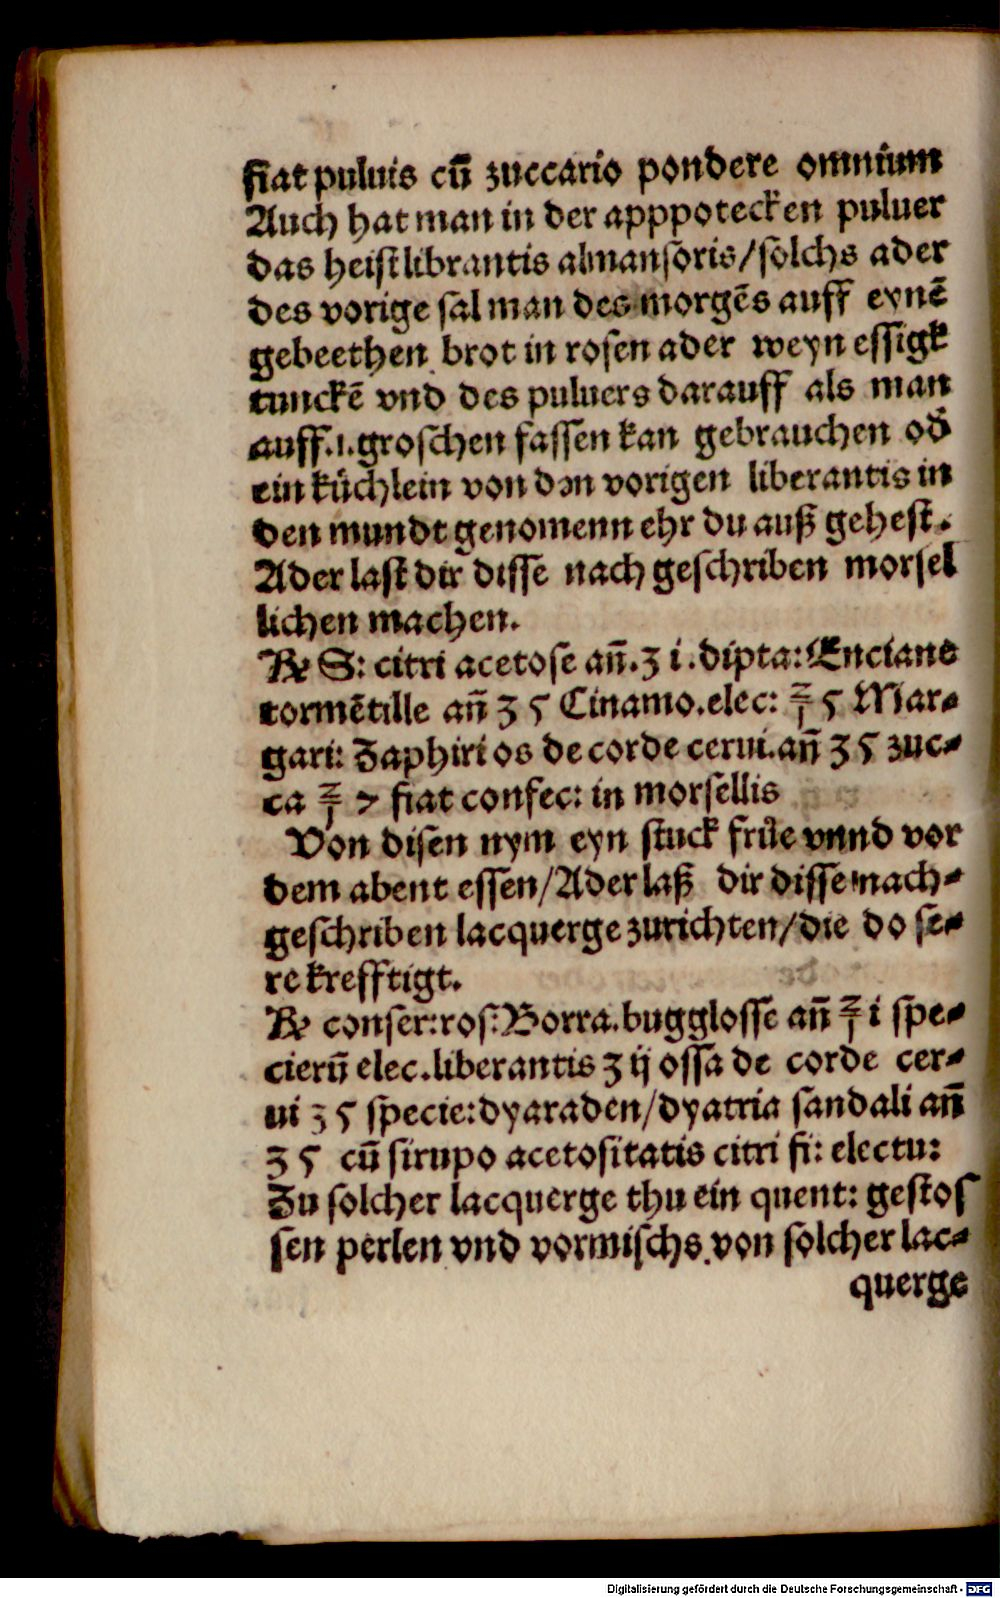 fiat puluis cū zuccario pondere omnium
Auch hat man in der apppotecken puluer
das heist librantis almansoris/solchs ader
des vorige sal man des morgēs auff eynē
gebeethen brot in rosen ader weyn essigk
tunckē vnd des puluers darauff als man
auff.1.groschen fassen kan gebrauchen od̄
ein küchlein von den vorigen liberantis in
den mundt genomenn ehr du auß gehest.
Ader last dir disse nach geschriben morsel
lichen machen.
℞ S: citri acetose an̄.ʒ i.dipta: Enciane
tormētille an̄ ʒ 5 Cinamo.elec: ℥ 5 Mar-
gari: Zaphiri os de corde cerui.an̄ ʒ 5 zuc-
ca ℥ 7 fiat confec: in morsellis
Von disen nym eyn stuck früe vnnd vor
dem abent essen/Ader laß dir disse nach-
geschriben lacquerge zurichten/die do se-
re krefftigt.
℞ conser:ros:Borra.bugglosse an̄ ℥ i spe-
cierū elec.liberantis ʒ ij ossa de corde cer-
ui ʒ 5 specie:dyaraden/dyatria sandali an̄
ʒ 5 cū sirupo acetositatis citri fi: electu:
Zu solcher lacquerge thu ein quent: gestos
sen perlen vnd vormischs.von solcher lac-
querge
Digitalisierung gefördert durch die Deutsche Forschungsgemeinschaft - DFG